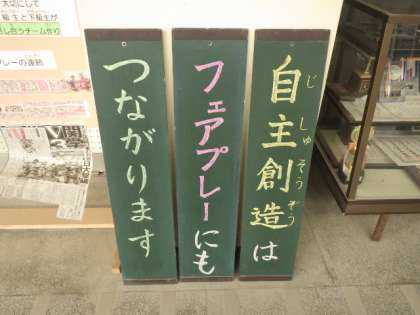 自主創造は
じしゅそうぞう
フェアプレーにも
つながります
大切にして
級生と下級生が
し合うチーム作り
プレーの連続
V3